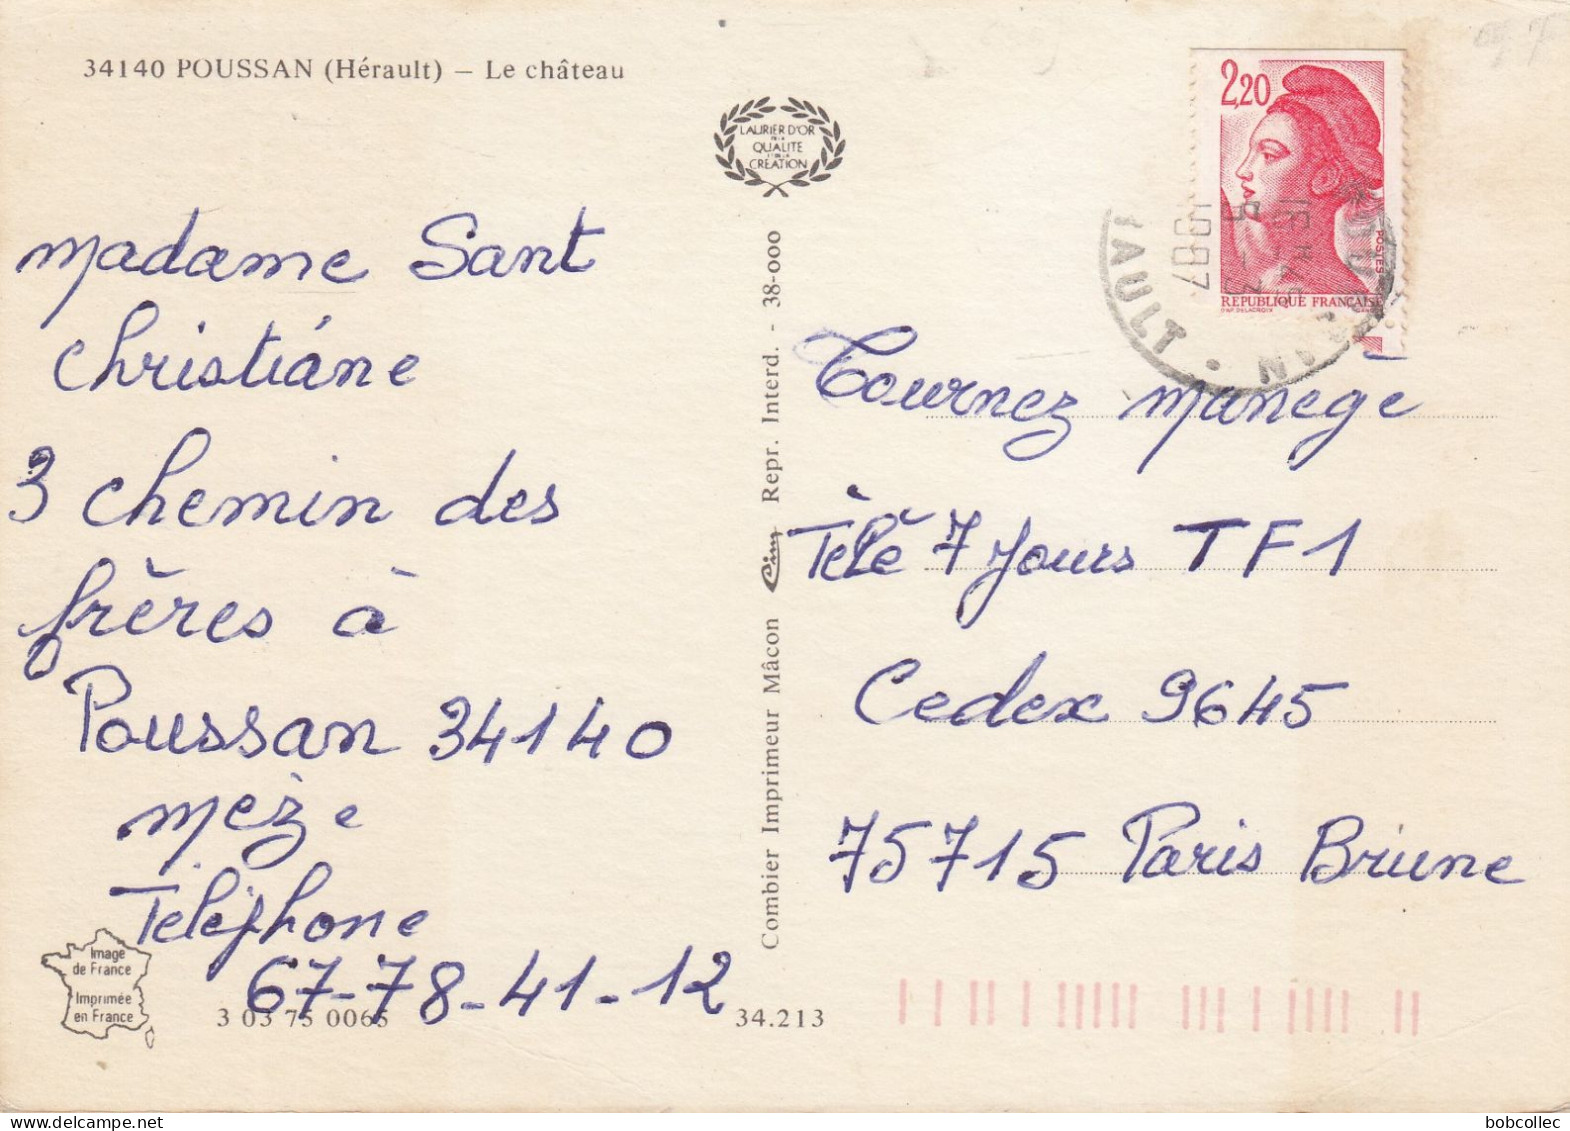 34140 POUSSAN (Hérault) – Le château
LAURIER D'OR
DE LA
QUALITE
ET DE LA
CREATION
madame Sant
christiáne
3 chemin des
frères à
Poussan 34140
mèze
Téléphone
67-78-41-12
Image
de France
Imprimée
en France
3 03 75 0065
34.213
Combier Imprimeur Mâcon Cim Repr. Interd. - 38-000
2,20
POSTES
REPUBLIQUE FRANÇAISE
D'AP. DELACROIX
1987
HAULT
Tournez manege
Télé 7 Jours TF1
Cedex 9645
75715 Paris Brune
bobcollec